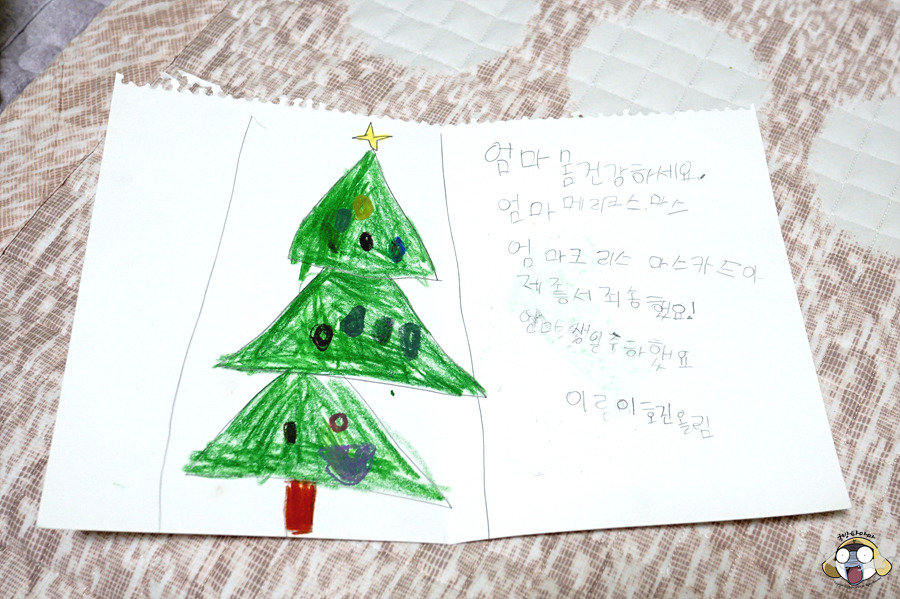 엄마 몸건강하세요.
엄마 메리크스.마스
엄마크리스 마스카드아
제흠서죄송했요!
엄마.생일축하했요
이름이호진올림